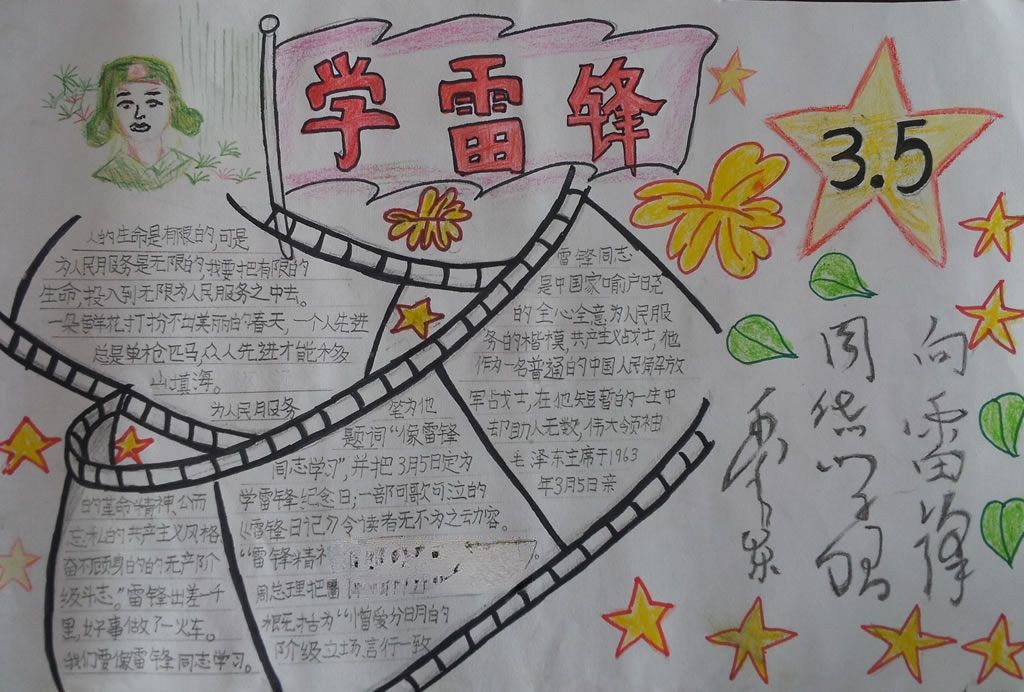 学雷锋
3.5
人的生命是有限的,可是
为人民服务是无限的,我要把有限的
生命,投入到无限为人民服务之中去。
一朵鲜花打扮不出美丽的春天,一个人先进
总是单枪匹马,众人先进才能移
山填海。
为人民服务
雷锋同志
是中国家喻户晓
的全心全意为人民服
务的楷模,共产主义战士,他
作为一名普通的中国人民解放
军战士,在他短暂的一生中
却助人无数,伟大领袖
毛泽东主席于1963
年3月5日亲
笔为他
题词“像雷锋
同志学习”,并把3月5日定为
学雷锋纪念日,一部可歌可泣的
《雷锋日记》令读者无不为之动容。
“雷锋精神
周总理把
概括为“憎爱分明的
阶级立场,言行一致
的革命精神,公而
忘私的共产主义风格
奋不顾身的的无产阶
级斗志。”雷锋出差一千
里,好事做了一火车。
我们要像雷锋同志学习。
向雷锋
同志学习
毛泽东